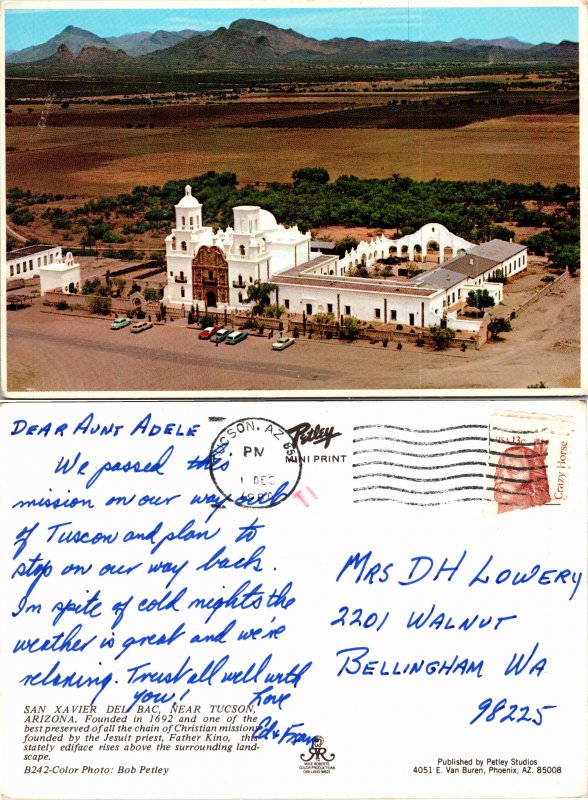 DEAR AUNT ADELE
We passed this
mission on our way out
of Tuscon and plan to
stop on our way back.
In spite of cold nights the
weather is great and we're
relaxing. Trust all well with
you! Love
Ed & Fran
TUCSON, AZ 85
PM
1 DEC
Petley
MINI PRINT
USA 13c
Crazy Horse
MRS DH LOWERY
2201 WALNUT
BELLINGHAM WA
98225
SAN XAVIER DEL BAC, NEAR TUCSON,
ARIZONA. Founded in 1692 and one of the
best preserved of all the chain of Christian missions
founded by the Jesuit priest, Father Kino, this
stately ediface rises above the surrounding land-
scape.
B242-Color Photo: Bob Petley
MIKE ROBERTS
COLOR PRODUCTIONS
Published by Petley Studios
4051 E. Van Buren, Phoenix, AZ. 85008